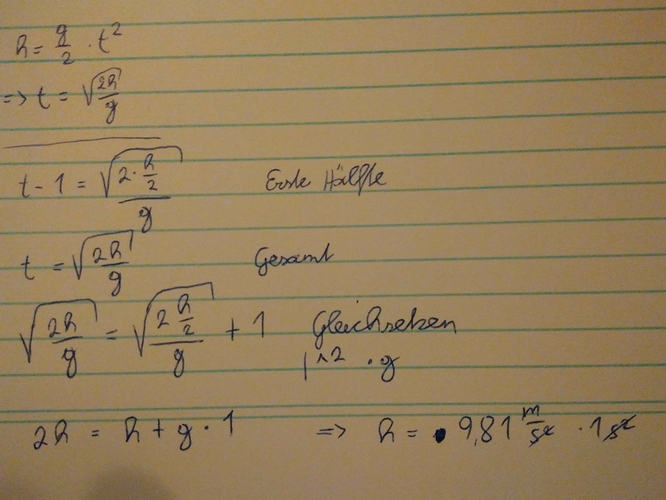 h = g/2 · t²
=> t = √(2h/g)
t - 1 = √(2·h/2 / g) Erste Hälfte
t = √(2h/g) Gesamt
√(2h/g) = √(2 h/2 / g) + 1 Gleichsetzen
|^2 · g
2h = h + g · 1 => h = 9,81 m/s² · 1 s²